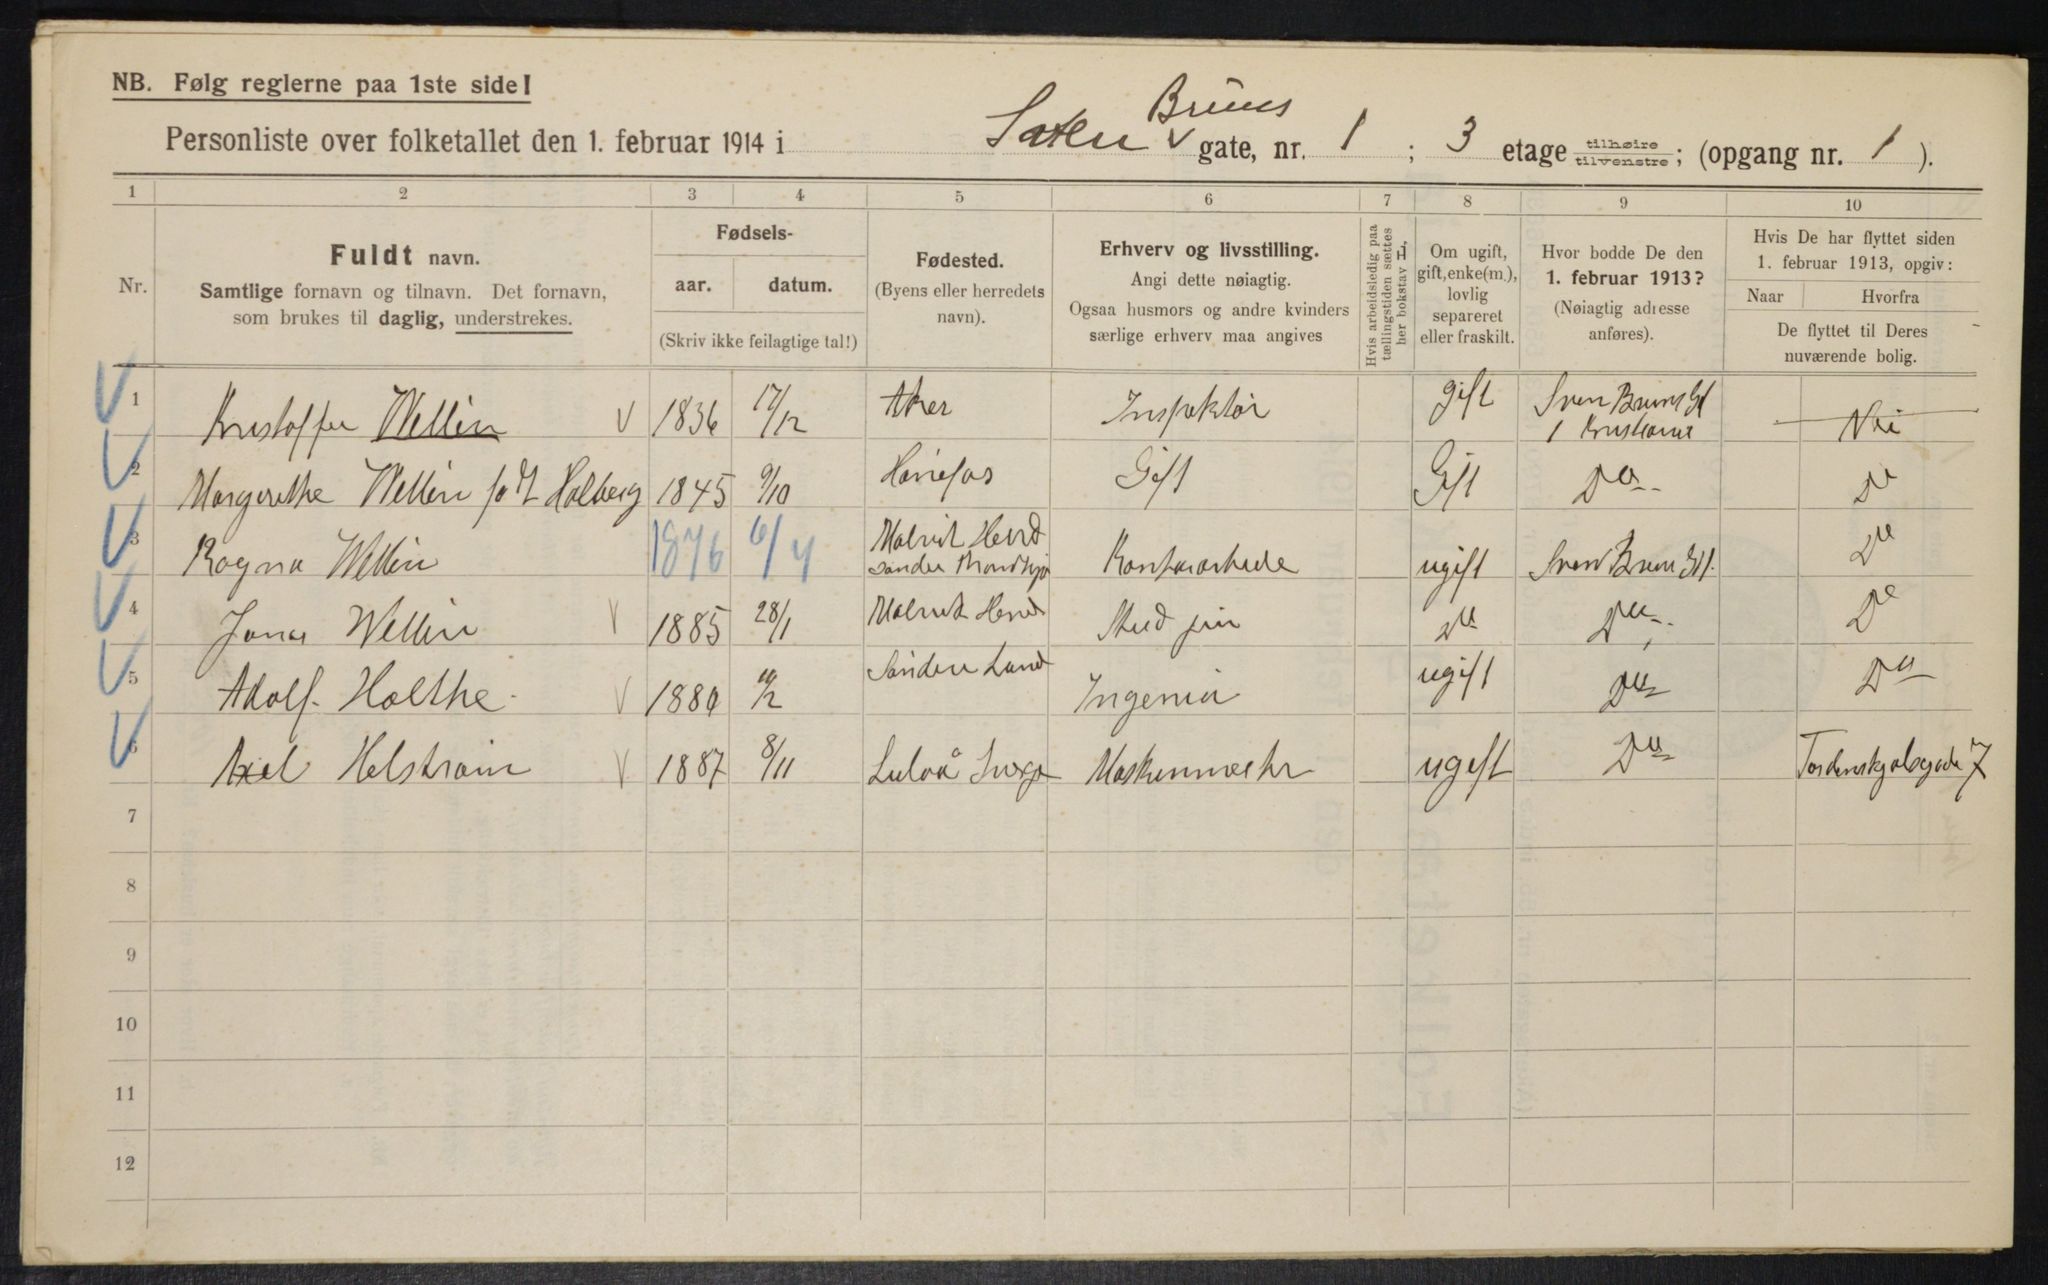 NB. Følg reglerne paa 1ste side!
Bruns
Personliste over folketallet den 1. februar 1914 i gate, nr. 1 ; 3 etage tilhøire tilvenstre; (opgang nr. 1 ).
1 2 3 4 5 6 7 8 9 10
Nr.
Fuldt navn.
Samtlige fornavn og tilnavn. Det fornavn,
som brukes til daglig, understrekes.
Fødsels-
aar. datum.
(Skriv ikke feilagtige tal!)
Fødested.
(Byens eller herredets
navn).
Erhverv og livsstilling.
Angi dette nøiagtig.
Ogsaa husmors og andre kvinders
særlige erhverv maa angives
Hvis arbeidsledig paa
tællingstiden sættes
her bokstav L.
Om ugift,
gift, enke(m.),
lovlig
separeret
eller fraskilt.
Hvor bodde De den
1. februar 1913?
(Nøiagtig adresse
anføres).
Hvis De har flyttet siden
1. februar 1913, opgiv:
Naar Hvorfra
De flyttet til Deres
nuværende bolig.
1 Kristoffer Wellén 1836 17/12 Aker Inspektør gift Sven Bruns Gt
1 Kristiania Nei
2 Margrethe Wellén født Holberg 1845 9/10 Hønefos Gift Gift Do Do
3 Ragna Wellén 1876 6/4 Malvik Herred
Søndre Trondhjem ugift Sven Brun Gt. Do
4 Jonas Wellén 1885 28/1 Malvik Herred Stud jur Do Do Do
5 Adolf Holthe 1880 Søndre Land Ingeniør ugift Do Do
6 Axel Helstrøm 1887 8/11 Luleå Sverge Maskinmester ugift Do Tordenskjolsgade 7
7
8
9
10
11
12